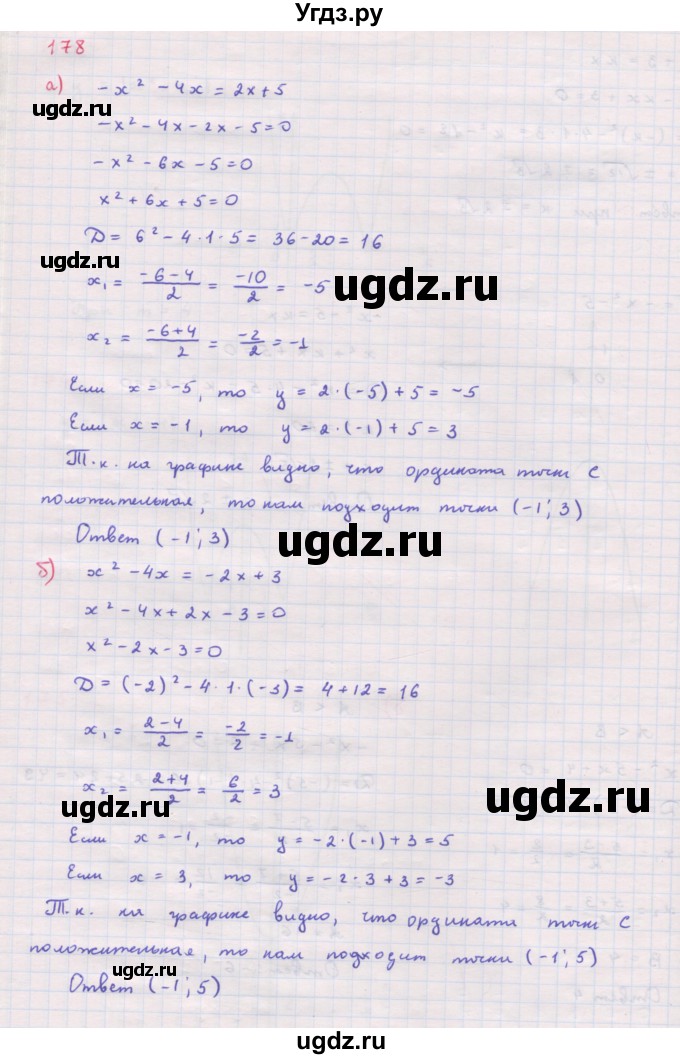 Угдз.ру
178
а) -x² - 4x = 2x + 5
-x² - 4x - 2x - 5 = 0
-x² - 6x - 5 = 0
x² + 6x + 5 = 0
D = 6² - 4·1·5 = 36 - 20 = 16
ugdz.ru
x₁ = (-6-4)/2 = -10/2 = -5
ugdz.ru
x₂ = (-6+4)/2 = -2/2 = -1
Если x = -5, то y = 2·(-5) + 5 = -5
ugdz.ru
Если x = -1, то y = 2·(-1) + 5 = 3
Т.к. на графике видно, что ордината точки C
положительная, то нам подходит точки (-1; 3)
Ответ (-1; 3)
ugdz.ru
б) x² - 4x = -2x + 3
x² - 4x + 2x - 3 = 0
x² - 2x - 3 = 0
D = (-2)² - 4·1·(-3) = 4 + 12 = 16
x₁ = (2-4)/2 = -2/2 = -1
x₂ = (2+4)/2 = 6/2 = 3
ugdz.ru
ugdz.ru
Если x = -1, то y = -2·(-1) + 3 = 5
Если x = 3, то y = -2·3 + 3 = -3
Т.к. на графике видно, что ордината точки C
положительная, то нам подходит точки (-1; 5)
ugdz.ru
Ответ (-1; 5)
ugdz.ru